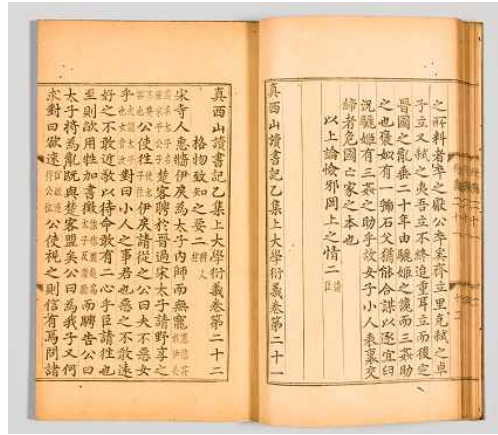 之所料者卒之獻公卒奚齊立里克弒之卓
子立又弒之夷吾立不終追重耳立而後定
晉國之亂垂二十年由驪姬之譖而三姦助
之也褒姒有一石父猶能合謀以逐宜臼
況驪姬有三姦之助乎故女子小人表裏交
締者危國亡家之本也
以上論憸邪罔上之情二
真西山讀書記乙集上大學衍義卷第二十一
真西山讀書記乙集上大學衍義卷第二十二
格物致知之要二 辨人
宋寺人惠牆伊戾為太子內師而無寵
楚客聘於晉過宋太子請野享之
公使往伊戾請從之公曰夫不惡女
乎對曰小人之事君也惡之不敢遠
好之不敢近敬以待命敢有二心乎臣請往也
至則欿用牲加書徵而聘告公曰
太子將為亂既與楚客盟矣公曰為我子又何
求對曰欲速公使視之則信有焉問諸